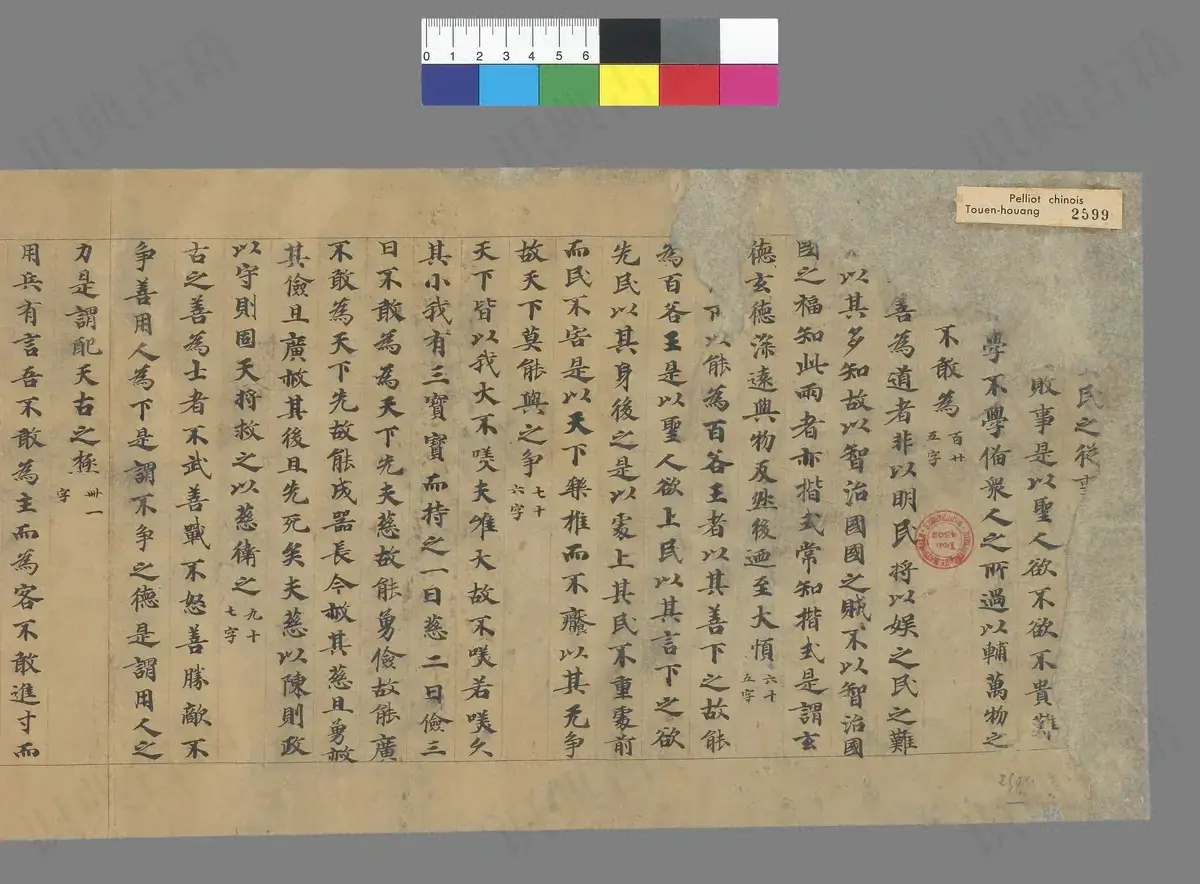 民之從事
敗事是以聖人欲不欲不貴難
學不學俻衆人之所過以輔萬物之
不敢為百廿五字
善為道者非以明民将以娱之民之難
以其多知故以智治國國之賊不以智治國
國之福知此兩者亦揩式常知揩式是謂玄
德玄德深遠與物反然後迺至大順六十五字
以能為百谷王者以其善下之故能
為百谷王是以聖人欲上民以其言下之欲
先民以其身後之是以䖏上其民不重䖏前
而民不害是以天下樂推而不猒以其无争
故天下莫能與之争七十六字
天下皆以我大不唉夫唯大故不唉若唉久
其小我有三寶寶而持之一曰慈二曰儉三
曰不敢為天下先夫慈故能勇儉故能廣
不敢為天下先故能成器長今赦其慈且勇赦
其儉且廣赦其後且先死矣夫慈以陳則政
以守則固天将救之以慈衛之九十七字
古之善為士者不武善戰不怒善勝敵不
争善用人為下是謂不争之德是謂用人之
力是謂配天古之極卌一字
用兵有言吾不敢為主而為客不敢進寸而
Pelliot chinois
Touen-houang 2599
0 1 2 3 4 5 6